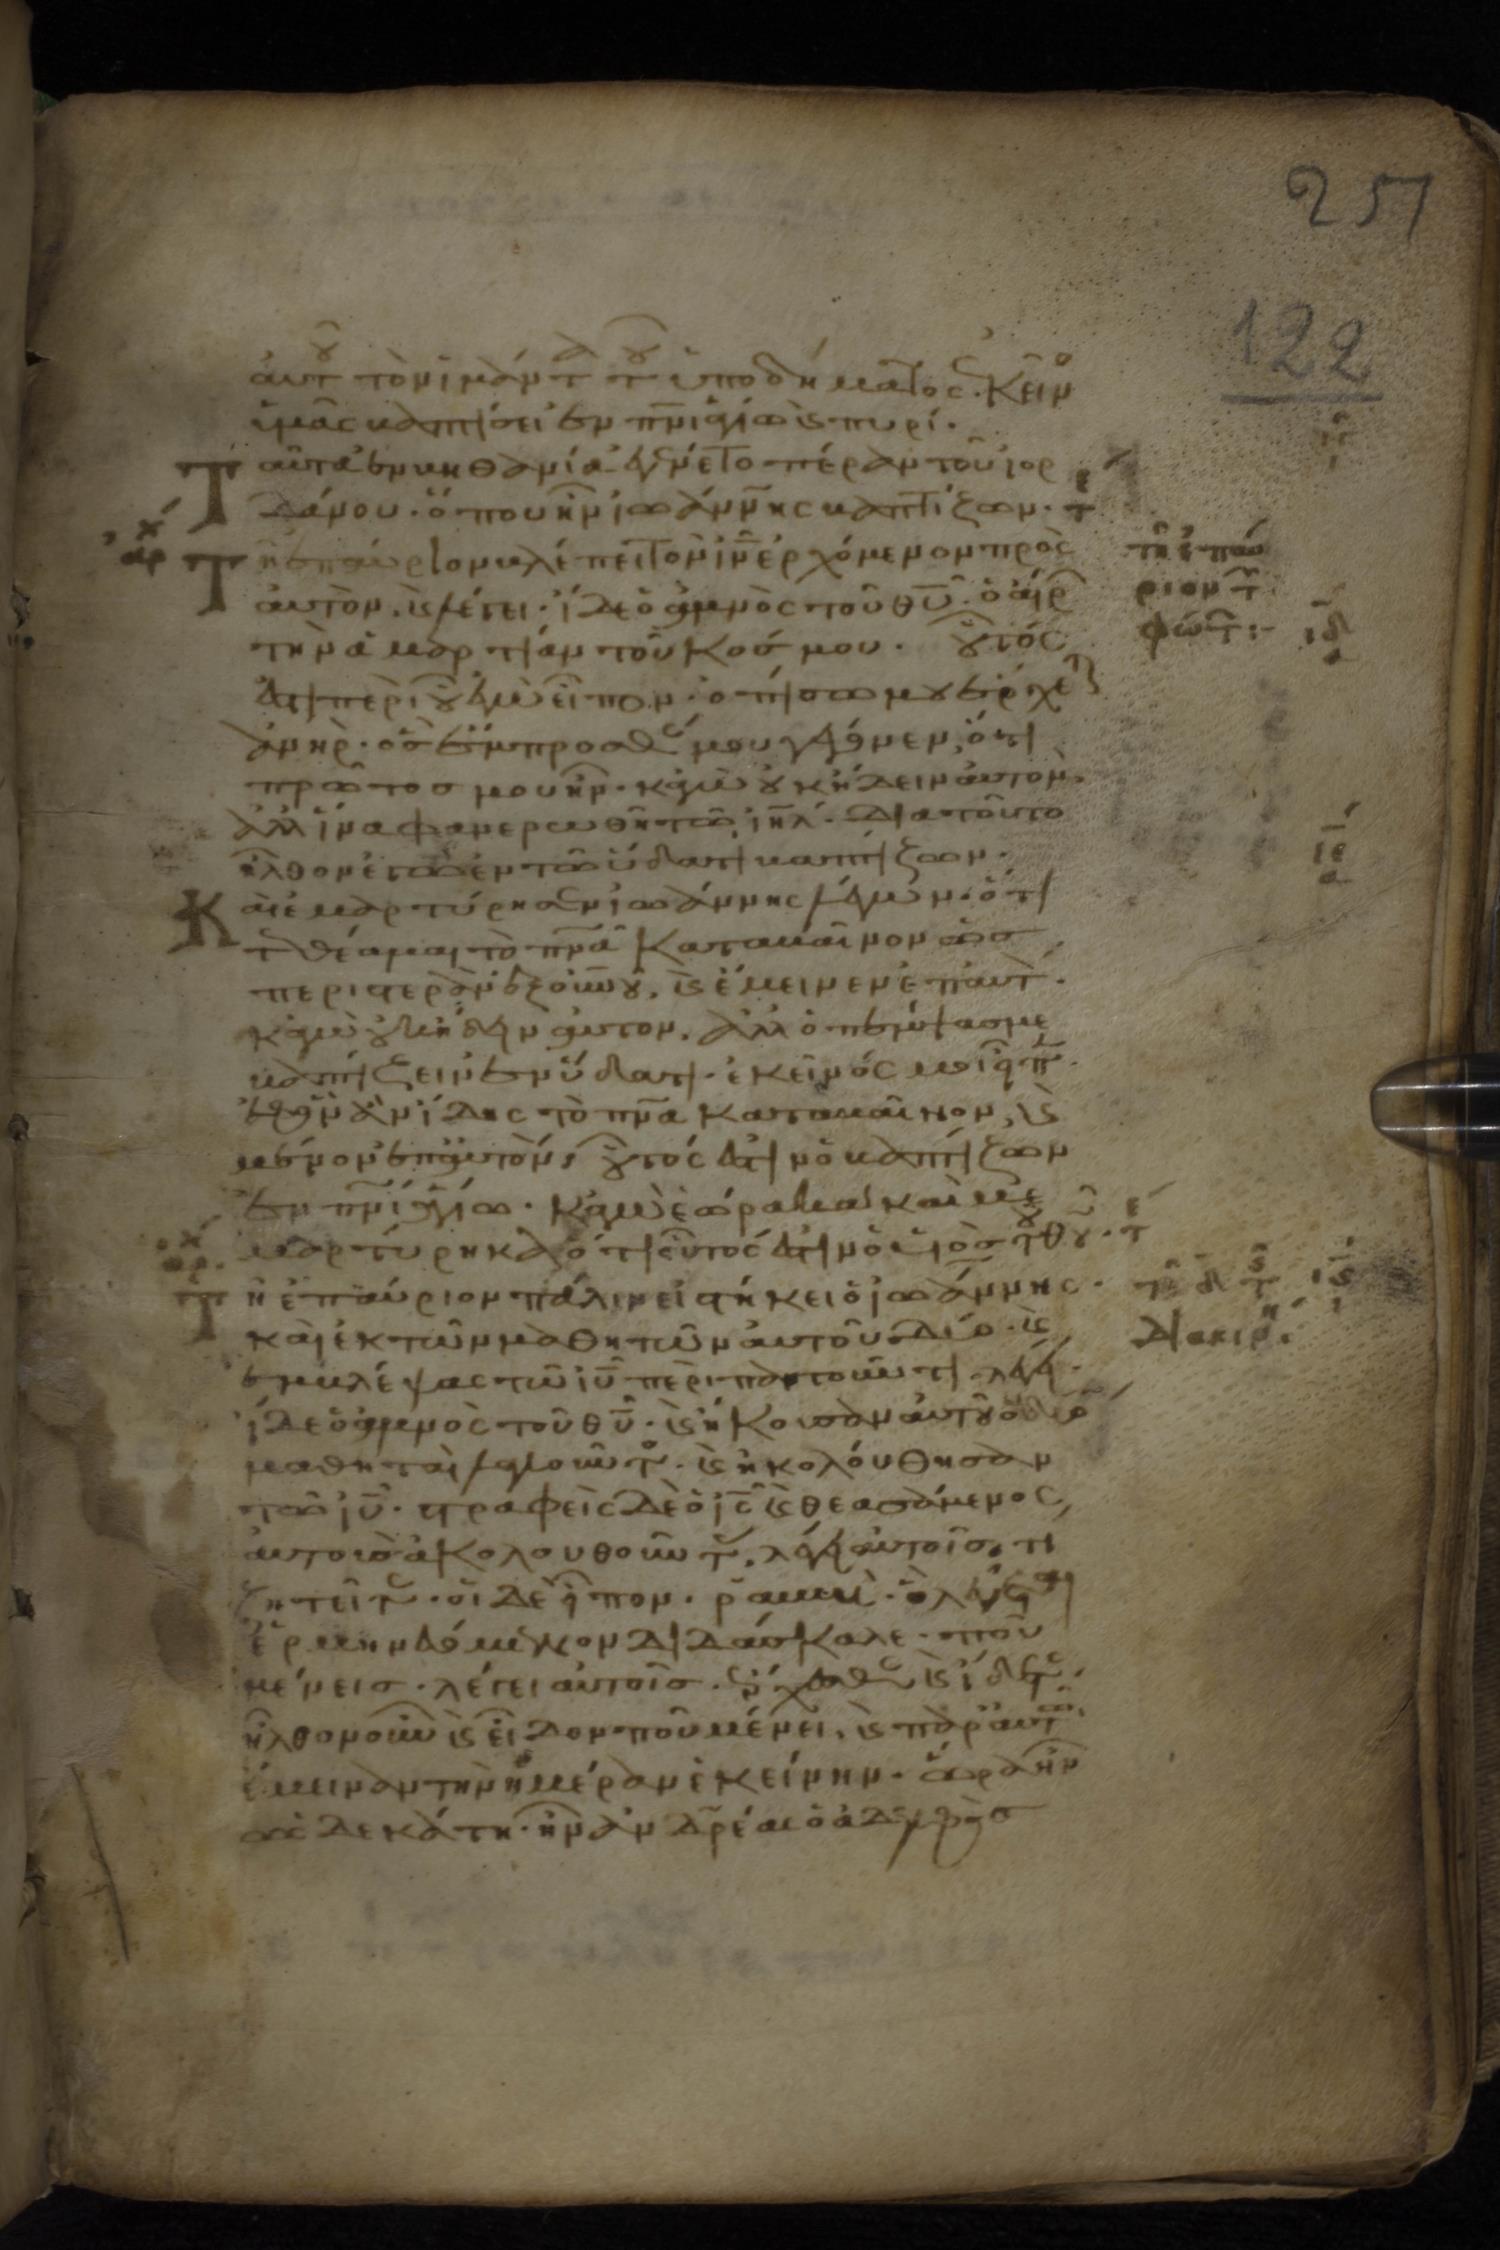 257
122
αυτοῦ τὸν ἱμάντα τοῦ ὑποδήματος. ἐκεῖνος
ὑμᾶς βαπτίσει ἐν πνι ἁγίω κ πυρί.
Ταῦτα ἐν βηθανία ἐγένετο πέραν τοῦ ἰορ
δάνου. ὅπου ἦν ἰωάννης βαπτίζων.
Τῆ ἐπαύριον βλέπει τὸν ἰν ἐρχόμενον πρὸς
αὐτὸν. κ λέγει. ἴδε ὁ ἀμνὸς τοῦ θυ. ὁ αἴρων
τὴν ἁμαρτίαν τοῦ κόσμου. οὗτός
ἐστι περὶ οὗ ἐγὼ εἶπον. ὀπίσω μου ἔρχεται
ἀνὴρ. ὃς ἔμπροσθεν μου γέγονεν, ὅτι
πρῶτοσ μου ἦν. κἀγὼ οὐκ ἤδειν αὐτὸν.
ἀλλ ἵνα φανερωθῆ τῶ ιηλ. διατοῦτο
ἦλθον ἐγὼ ἐν τῶ ὕδατι βαπτίζων.
Καὶ ἐμαρτύρησεν ἰωάννης λέγων. ὅτι
τεθέαμαι τὸ πνα καταβαῖνον ὡσ
περιστερὰν ἐξ οὐνοῦ, κ ἔμεινεν ἐπ αὐτὸν.
κἀγὼ οὐκ ἤδειν αὐτον. ἀλλ ὁ πέμψασ με
βαπτίζειν ἐν ὕδατι. ἐκεῖνός μοι εἶπεν.
ἐφ ὃν ἂν ἴδης τὸ πνα καταβαῖνον, κ
μένον ἐπ αὐτὸν, οὗτός ἐστιν ὁ βαπτίζων
ἐν πνι ἁγίω. κἀγὼ ἑώρακα καὶ με
μαρτύρηκα ὅτι οὗτός ἐστιν ὁ υἱὸσ τοῦ θυ.
Τῆ ἐπαύριον πάλιν εἱστήκει ὁ ἰωάννης.
καὶ ἐκ τῶν μαθητῶν αὐτοῦ δύο. κ
ἐμβλέψας τῶ ιυ περιπατοῦντι λέγει.
ἴδε ὁ ἀμνὸς τοῦ θυ. κ ἤκουσαν αὐτοῦ οἱ δύο
μαθηταὶ λαλοῦντος. κ ἠκολούθησαν
τῶ ιυ. στραφεὶς δὲ ὁ ις κ θεασάμενος
αὐτοὺσ ἀκολουθοῦντας, λέγει αὐτοῖσ. τι
ζητεῖτε. οἱ δὲ εἶπον. ῥαββὶ. ὃ λέγεται
ἑρμηνευόμενον διδάσκαλε. ποῦ
μένεισ. λέγει αὐτοῖσ. ἔρχεσθε κ ἴδετε.
ἦλθον οὖν κ εἶδον ποῦ μένει, κ παρ αὐτῶ
ἔμειναν τὴν ἡμέραν ἐκείνην. ὥρα ἦν
ὡς δεκάτη. ἦν ἀνδρέας ὁ ἀδελφὸσ
τῆ ἐπαύ
ριον τ
φώτ:-
ιδ
ιε
ις